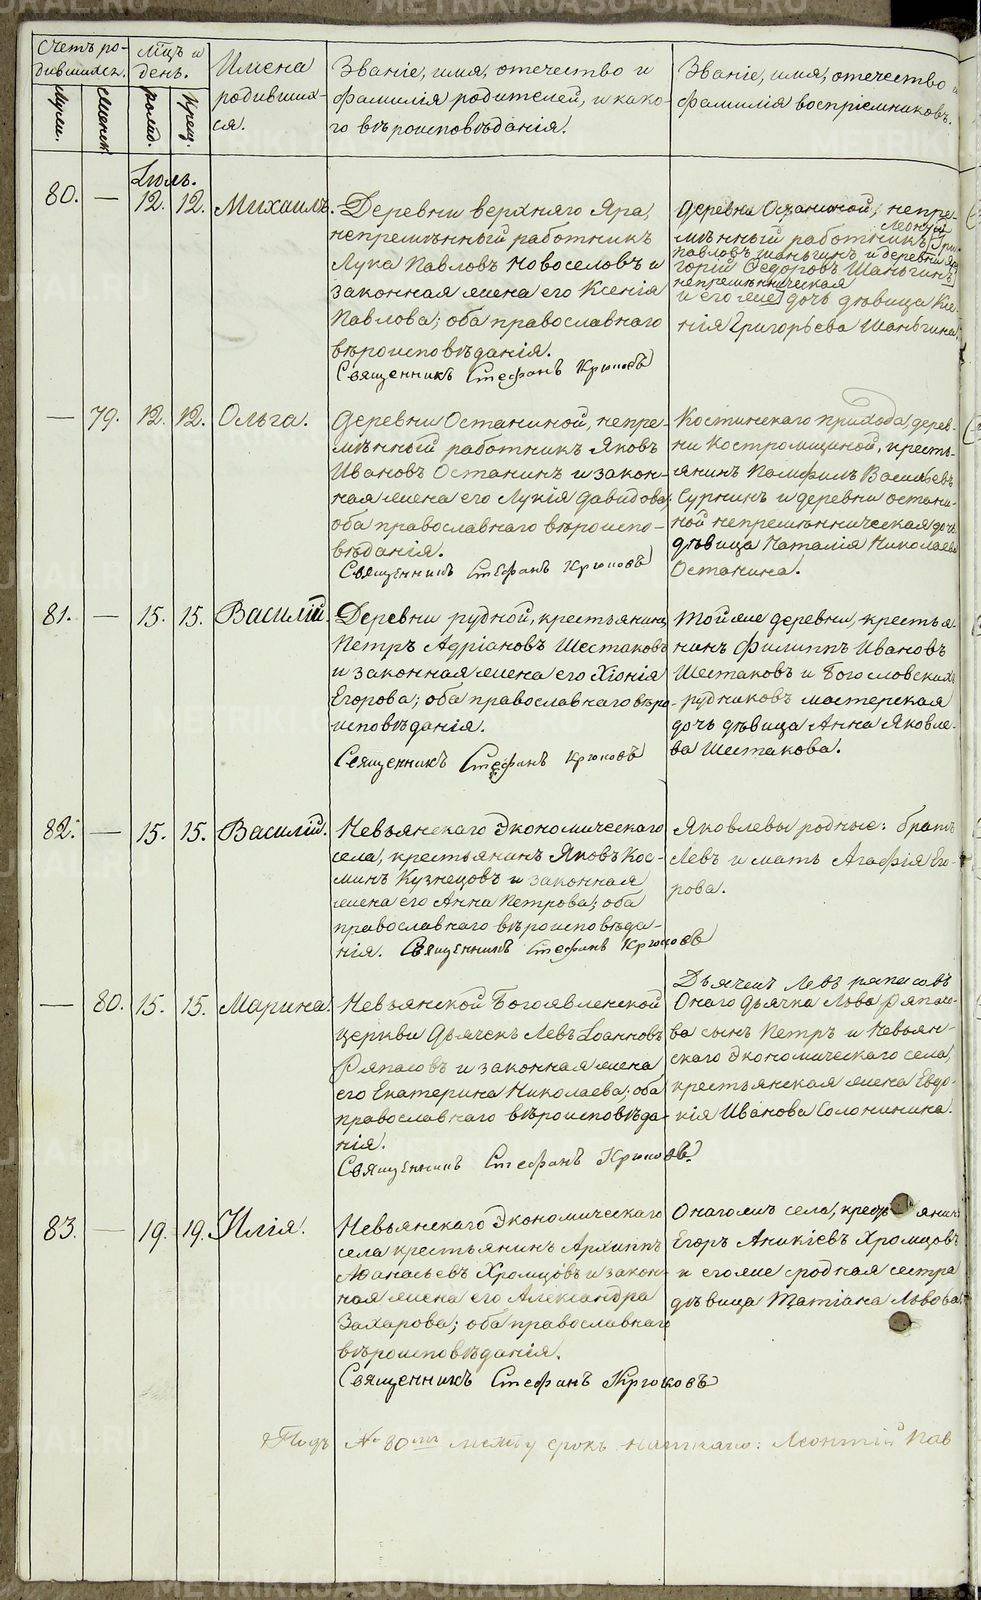 Счетъ ро-
дившихся.
Муж.
Женск
Мѣцъ и
день.
рожд.
Крещ.
Имена
родивших-
ся.
Званіе, имя, отечество и
фамилія родителей, и како-
го вѣроисповѣданія.
Званіе, имя, отечество и
фамилія воспріемниковъ.
Іюль.
80. — 12. 12. Михаилъ.
Деревни верхняго Яра,
непремѣнный работникъ
Лука Павловъ Новоселовъ и
законная жена его Ксенія
Павлова; оба православнаго
вѣроисповѣданія.
Священникъ Стефанъ Крюковъ
Деревни Останиной, непре-
Леонтій
мѣнный работникъ Гри-
Павловъ Шаньгинъ и деревни
горій Ѳедоровъ Шаньгинъ
непремѣнническая
и его же дочь дѣвица Ксе-
нія Григорьева Шаньгина.
— 79. 12. 12. Ольга.
Деревни Останиной, непре-
мѣнный работникъ Яковъ
Ивановъ Останинъ и закон-
ная жена его Лукія Давидова;
оба православнаго вѣроиспо-
вѣданія.
Священникъ Стефанъ Крюковъ
Костинскаго прихода, дерев-
ни Костромщиной, кресть-
янинъ Памфилъ Васильевъ
Суркинъ и деревни Остани-
ной непремѣнническая дочь
дѣвица Наталія Николаева
Останина.
81. — 15. 15. Василій.
Деревни рудной, крестьянинъ
Петръ Адріановъ Шестаковъ
и законная жена его Хіонія
Егорова; оба православнаго вѣро-
исповѣданія.
Священникъ Стефанъ Крюковъ
Той же деревни, крестья-
нинъ Филиппъ Ивановъ
Шестаковъ и Богословскихъ
рудниковъ мастерская
дочь дѣвица Анна Яковле-
ва Шестакова.
82. — 15. 15. Василій.
Невьянскаго Экономическаго
села, крестьянинъ Яковъ Кос-
минъ Кузнецовъ и законная
жена его Анна Петрова; оба
православнаго вѣроисповѣда-
нія. Священникъ Стефанъ Крюковъ
Яковлевы родные: братъ
Левъ и мать Агафія Его-
рова.
— 80. 15. 15. Марина.
Невьянской Богоявленской
церкви Дьячекъ Левъ Іоанновъ
Ряпасовъ и законная жена
его Екатерина Николаева; оба
православнаго вѣроисповѣда-
нія.
Священникъ Стефанъ Крюковъ.
Дьячекъ Левъ Ряпасовъ
Онаго дьячка Льва Ряпасо-
ва сынъ Петръ и Невьян-
скаго Экономическаго села,
крестьянская жена Евдо-
кія Иванова Солонинина.
83. — 19. 19. Илія.
Невьянскаго Экономическаго
села крестьянинъ Архиппъ
Аѳанасьевъ Хромцовъ и закон-
ная жена его Александра
Захарова; оба православнаго
вѣроисповѣданія.
Священникъ Стефанъ Крюковъ
Онагожъ села, крестьянинъ
Егоръ Аникіевъ Хромцовъ
и его же сродная сестра
дѣвица Татіана Львова.
Подъ № 80мъ между срокъ написано: Леонтій Пав